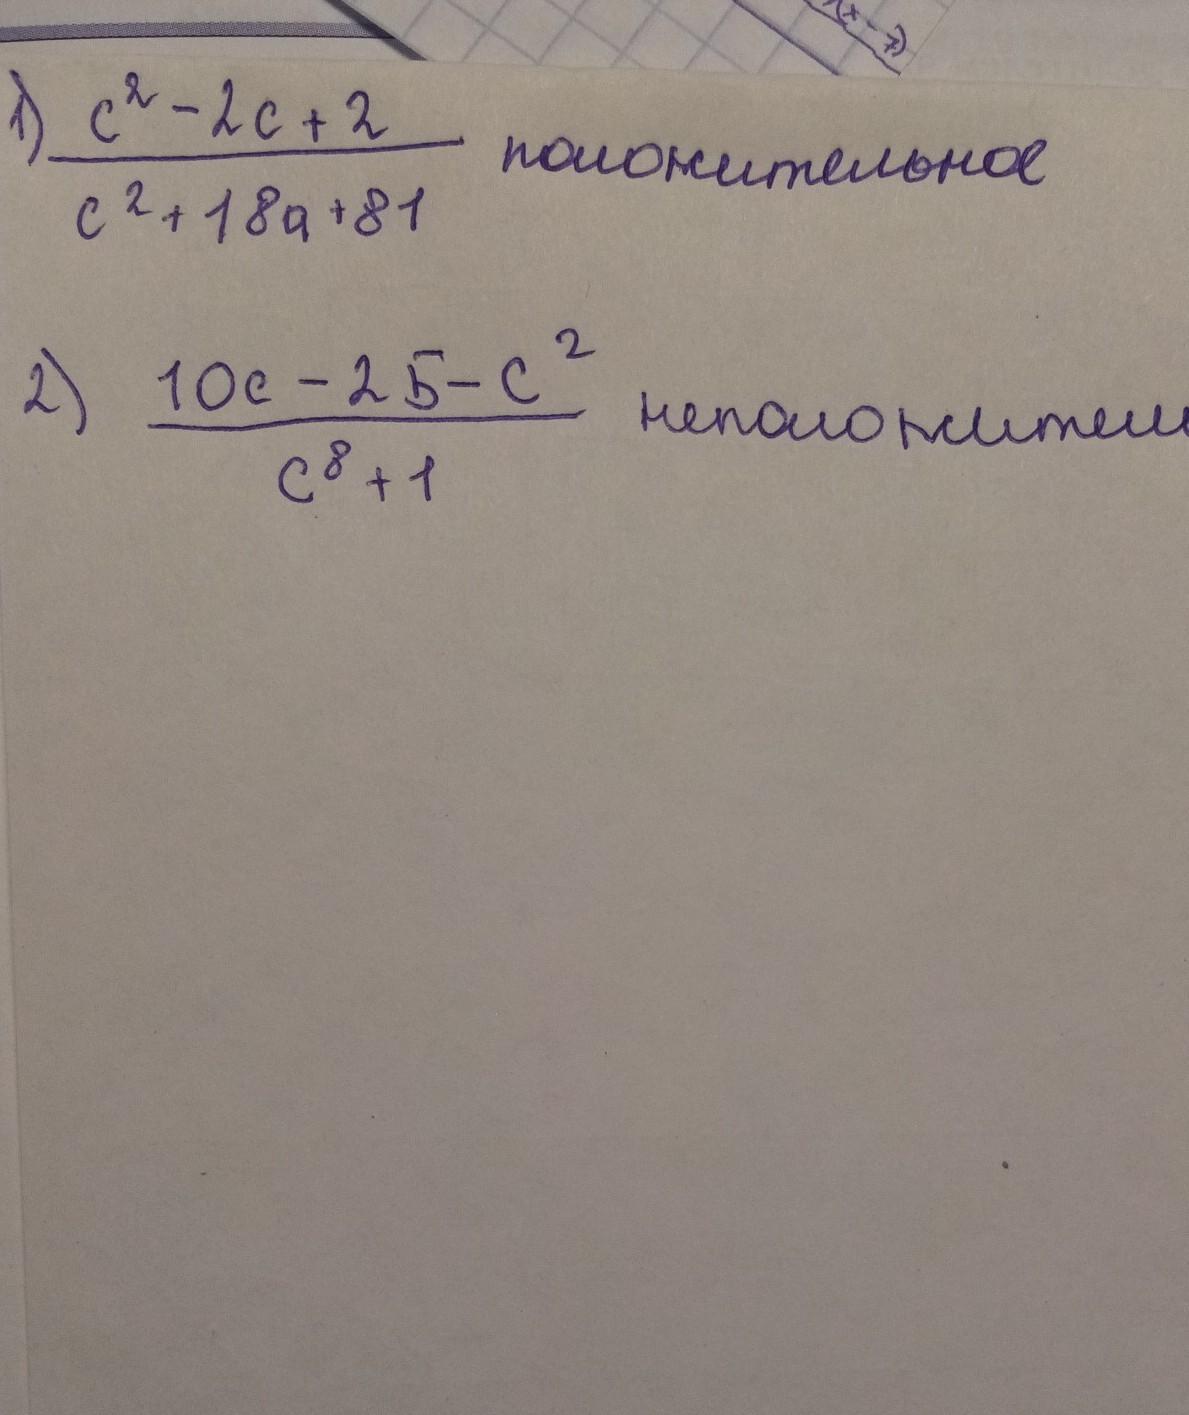 1) c² - 2c + 2 / c² + 18a + 81 положительное
2) 10c - 25 - c² / c⁸ + 1 неположител